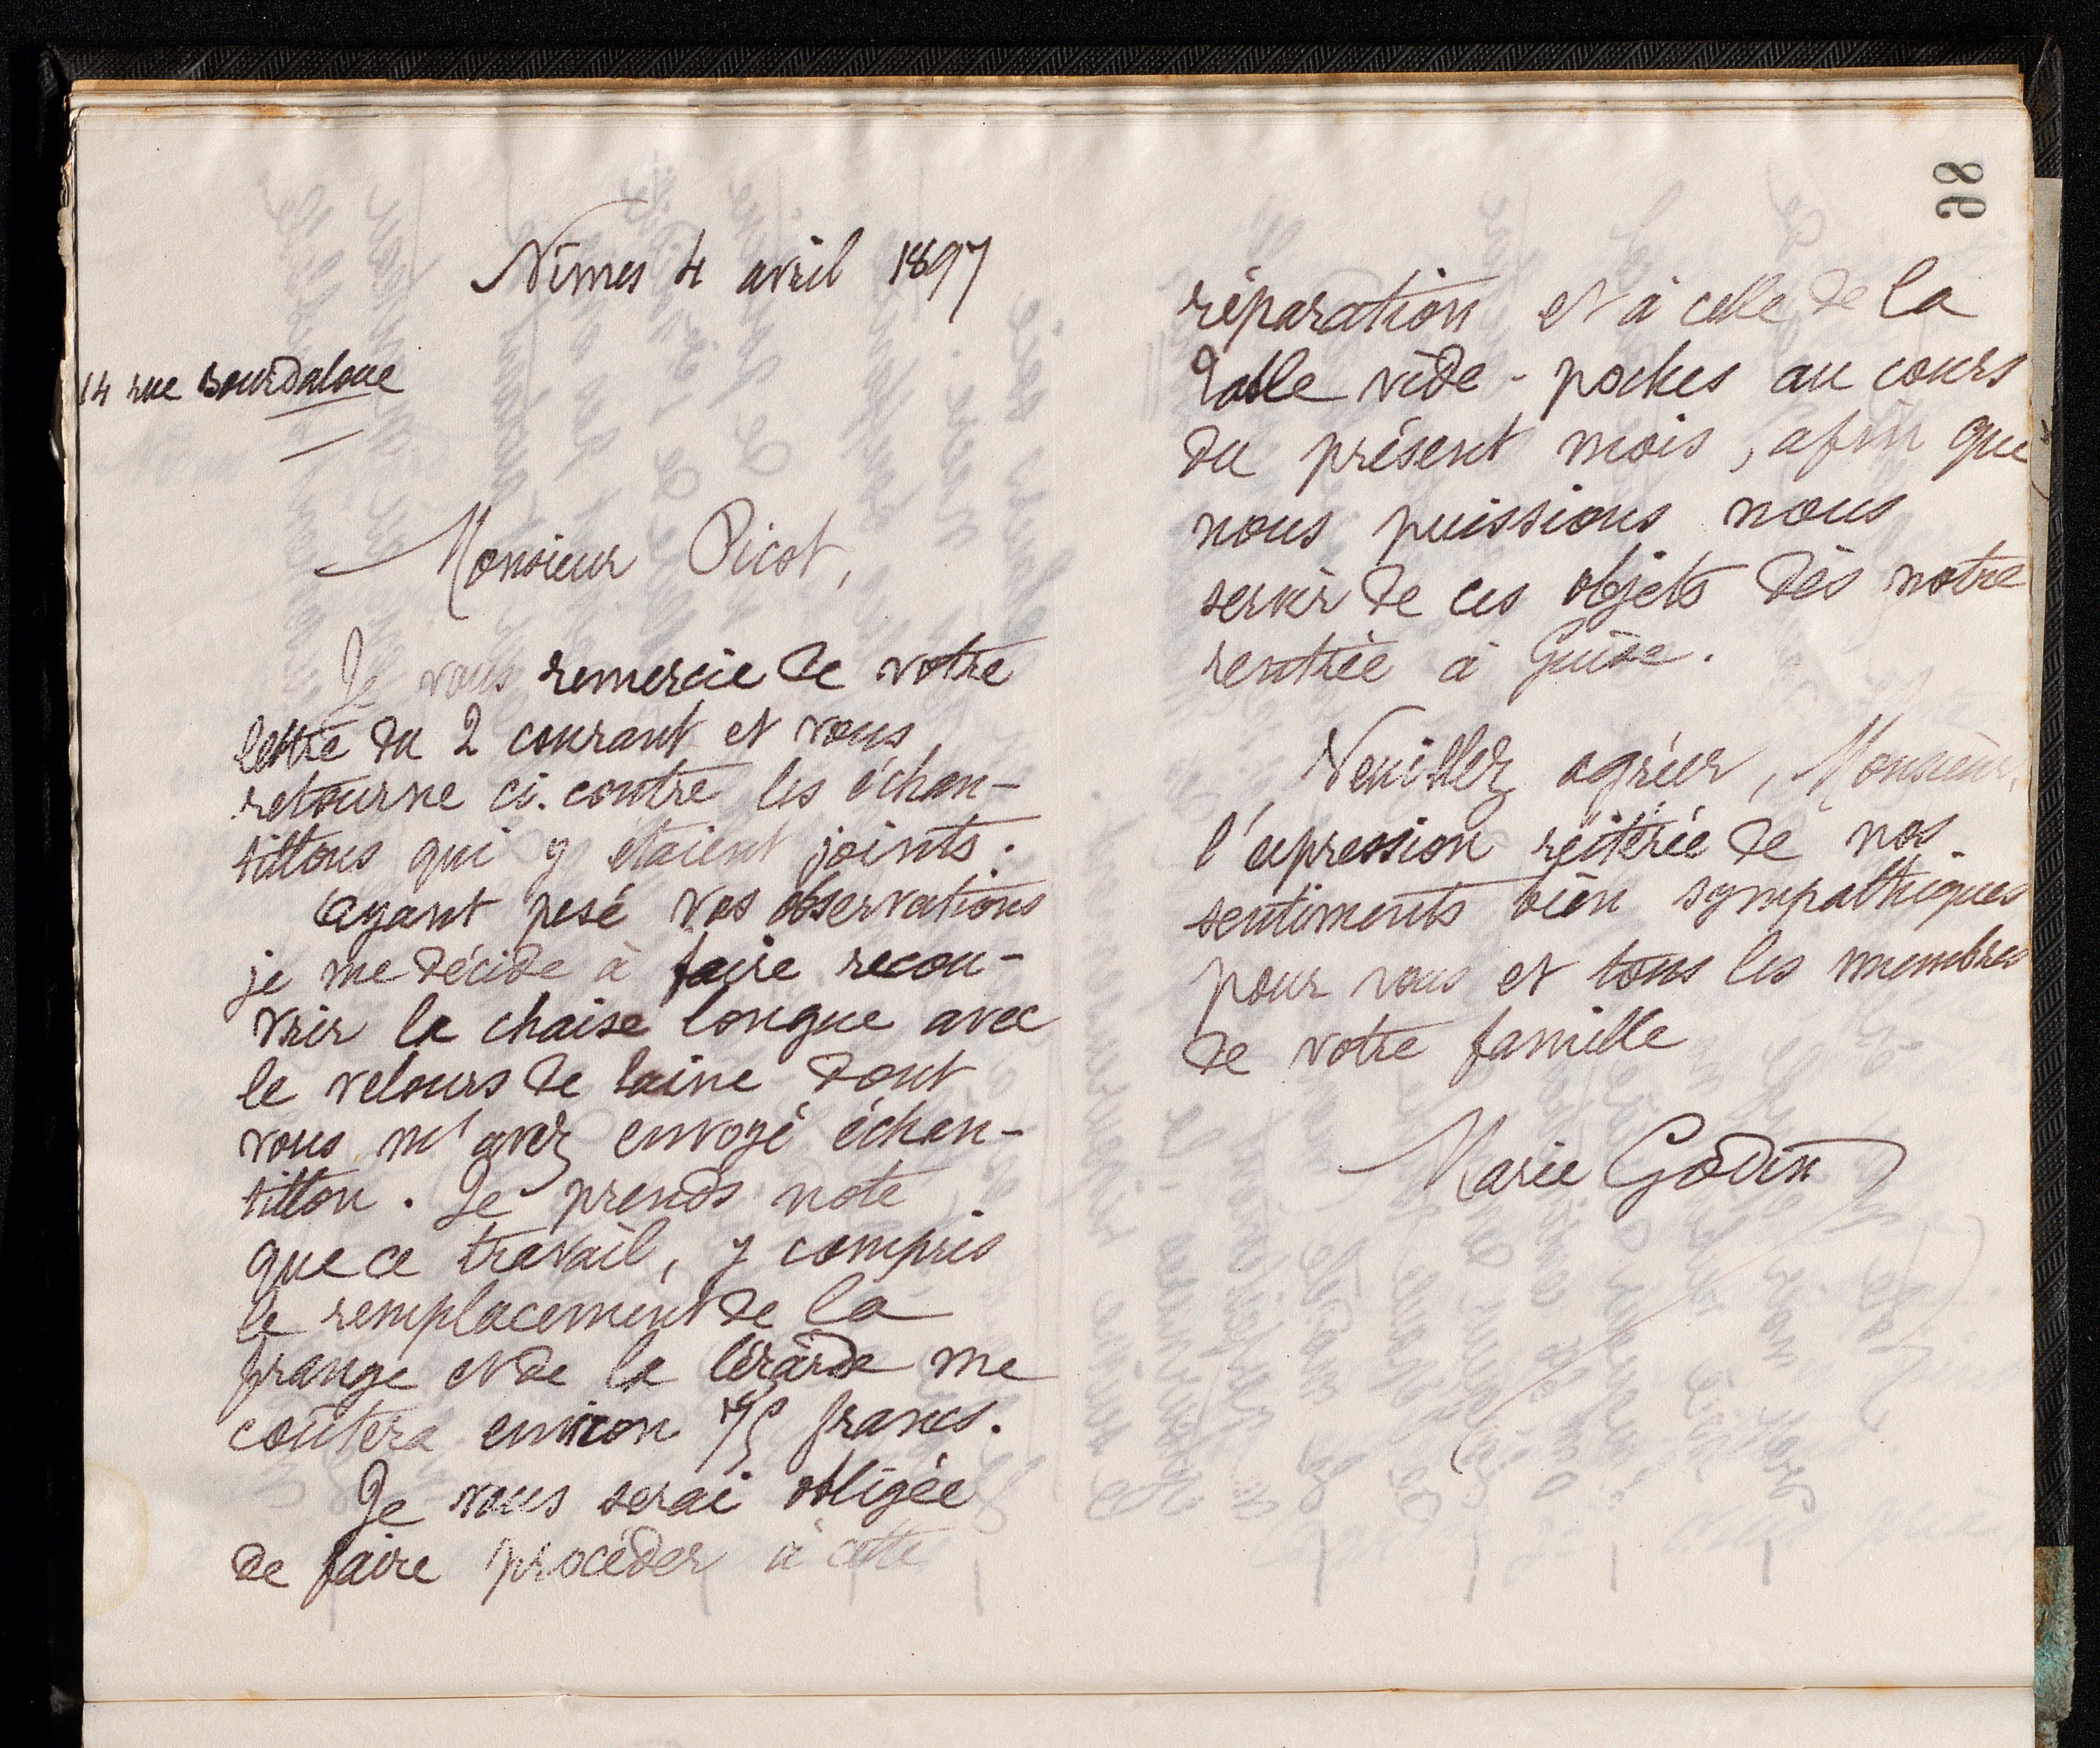 98
Nîmes 4 avril 1897
14 rue Bourdaloue
Monsieur Picot,
Je vous remercie de votre
lettre du 2 courant et vous
retourne ci-contre les échan-
tillons qui y étaient joints.
Ayant pesé vos observations
je me décide à faire recou-
vrir la chaise longue avec
le velours de laine dont
vous m'avez envoyé échan-
tillon. Je prends note
que ce travail, y compris
le remplacement de la
frange et de la lézarde me
coûtera environ 75 francs.
Je vous serai obligée
de faire procéder à cette
réparation et à celle de la
table vide-poches au cours
du présent mois, afin que
nous puissions nous
servir de ces objets dès notre
rentrée à Guise.
Veuillez agréer, Monsieur,
l'expression réitérée de nos
sentiments bien sympathiques
pour vous et tous les membres
de votre famille
Marie Godin